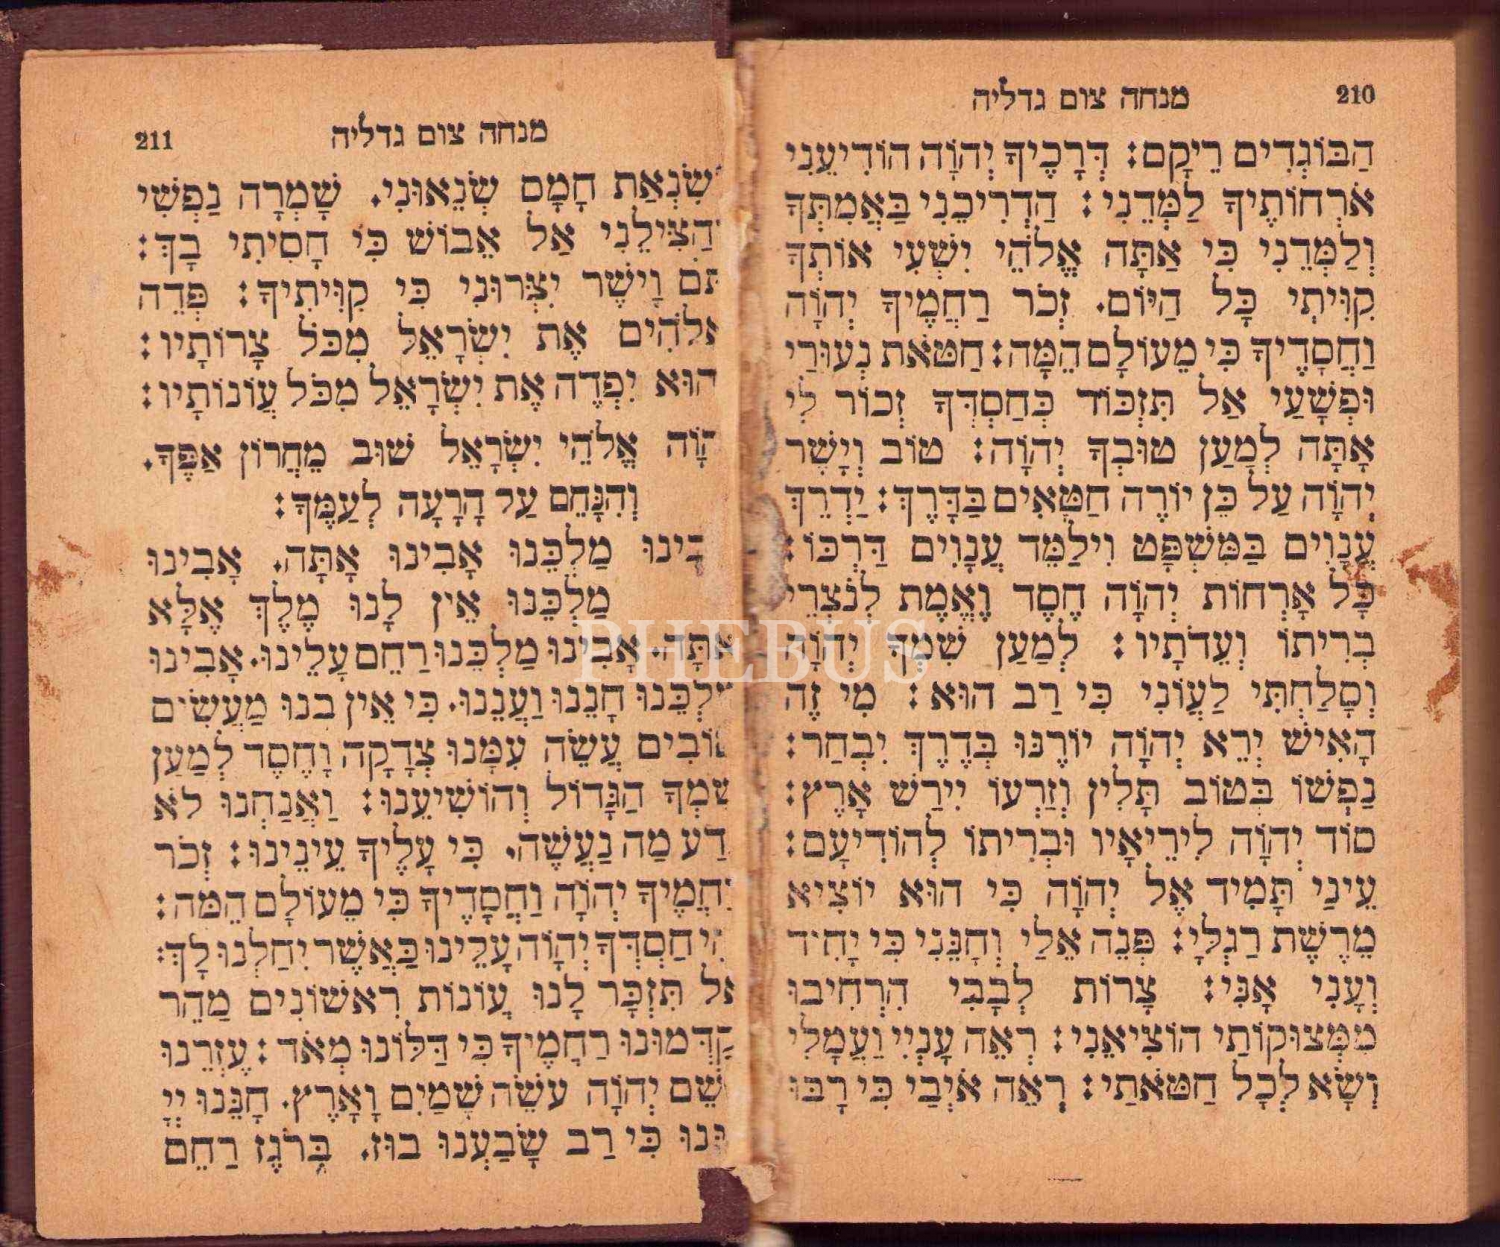 210 מנחה צום גדליה
הַבּוֹגְדִים רֵיקָם: דְּרָכֶיךָ יְהוָֹה הוֹדִיעֵנִי
אֹרְחוֹתֶיךָ לַמְּדֵנִי: הַדְרִיכֵנִי בַּאֲמִתְּךָ
וְלַמְּדֵנִי כִּי אַתָּה אֱלֹהֵי יִשְׁעִי אוֹתְךָ
קִוִּיתִי כָּל הַיּוֹם. זְכֹר רַחֲמֶיךָ יְהוָֹה
וַחֲסָדֶיךָ כִּי מֵעוֹלָם הֵמָּה: חַטֹּאת נְעוּרַי
וּפְשָׁעַי אַל תִּזְכּוֹד כְּחַסְדְּךָ זְכוֹר לִי
אַתָּה לְמַעַן טוּבְךָ יְהוָֹה: טוֹב וְיָשָׁר
יְהוָֹה עַל כֵּן יוֹרֶה חַטָּאִים בַּדָּרֶךְ: יַדְרֵךְ
עֲנָוִים בַּמִּשְׁפָּט וִילַמֵּד עֲנָוִים דַּרְכּוֹ:
כָּל אָרְחוֹת יְהוָֹה חֶסֶד וֶאֱמֶת לְנֹצְרֵי
בְרִיתוֹ וְעֵדֹתָיו: לְמַעַן שִׁמְךָ יְהוָֹה
וְסָלַחְתִּי לַעֲוֹנִי כִּי רַב הוּא: מִי זֶה
הָאִישׁ יְרֵא יְהוָֹה יוֹרֶנּוּ בְּדֶרֶךְ יִבְחַר:
נַפְשׁוֹ בְּטוֹב תָּלִין וְזַרְעוֹ יִירַשׁ אָרֶץ:
סוֹד יְהוָֹה לִירֵיאָיו וּבְרִיתוֹ לְהוֹדִיעָם:
עֵינַי תָּמִיד אֶל יְהוָֹה כִּי הוּא יוֹצִיא
מֵרֶשֶׁת רַגְלָי: פְּנֵה אֵלַי וְחָנֵּנִי כִּי יָחִיד
וְעָנִי אָנִּי: צָרוֹת לְבָבִי הִרְחִיבוּ
מִמְּצוּקוֹתַי הוֹצִיאֵנִי: רְאֵה עָנְיִי וַעֲמָלִי
וְשָׂא לְכָל חַטֹּאתַי: רְאֵה אֹיְבַי כִּי רָבּוּ
מנחה צום גדליה 211
שִׂנְאַת חָמָס שְׂנֵאוּנִי. שָׁמְרָה נַפְשִׁי
הַצִּילֵנִי אַל אֵבוֹשׁ כִּי חָסִיתִי בָךְ:
תֹּם וָיֹשֶׁר יִצְּרוּנִי כִּי קִוִּיתִיךָ: פְּדֵה
אֱלֹהִים אֶת יִשְׂרָאֵל מִכֹּל צָרוֹתָיו:
הוּא יִפְדֶה אֶת יִשְׂרָאֵל מִכֹּל עֲוֹנוֹתָיו:
הוָֹה אֱלֹהֵי יִשְׂרָאֵל שׁוּב מֵחֲרוֹן אַפֶּךָ.
וְהִנָּחֵם עַל הָרָעָה לְעַמֶּךָ:
בִינוּ מַלְכֵּנוּ אָבִינוּ אָתָּה. אָבִינוּ
מַלְכֵּנוּ אֵין לָנוּ מֶלֶךְ אֶלָּא
אַתָּה. אָבִינוּ מַלְכֵּנוּ רַחֵם עָלֵינוּ. אָבִינוּ
לְכֵּנוּ חָנֵּנוּ וַעֲנֵנוּ. כִּי אֵין בָּנוּ מַעֲשִׂים
וֹבִים עֲשֵׂה עִמָּנוּ צְדָקָה וָחֶסֶד לְמַעַן
שִׁמְךָ הַגָּדוֹל וְהוֹשִׁיעֵנוּ: וַאֲנַחְנוּ לֹא
דַע מַה נַעֲשֶׂה. כִּי עָלֶיךָ עֵינֵינוּ: זְכֹר
חֲמֶיךָ יְהוָֹה וַחֲסָדֶיךָ כִּי מֵעוֹלָם הֵמָּה:
הִי חַסְדְּךָ יְהוָֹה עָלֵינוּ כַּאֲשֶׁר יִחַלְנוּ לָךְ:
אַל תִּזְכָּר לָנוּ עֲוֹנוֹת רִאשׁוֹנִים מַהֵר
קַדְּמוּנוּ רַחֲמֶיךָ כִּי דַלּוֹנוּ מְאֹד: עֶזְרֵנוּ
שֵׁם יְהוָֹה עֹשֵׂה שָׁמַיִם וָאָרֶץ. חָנֵּנוּ יְיָ
נּוּ כִּי רַב שָׂבַעְנוּ בוּז. בְּרֹגֶז רַחֵם
PHEBUS